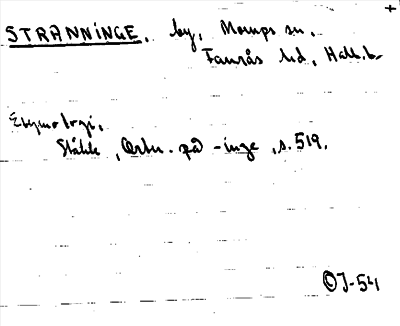 +
STRANNINGE, by, Morups sn,
Faurås hd, Hall.b.
Etymologi.
Ståhle, Ortn. på -inge, s. 519.
ÖJ-54